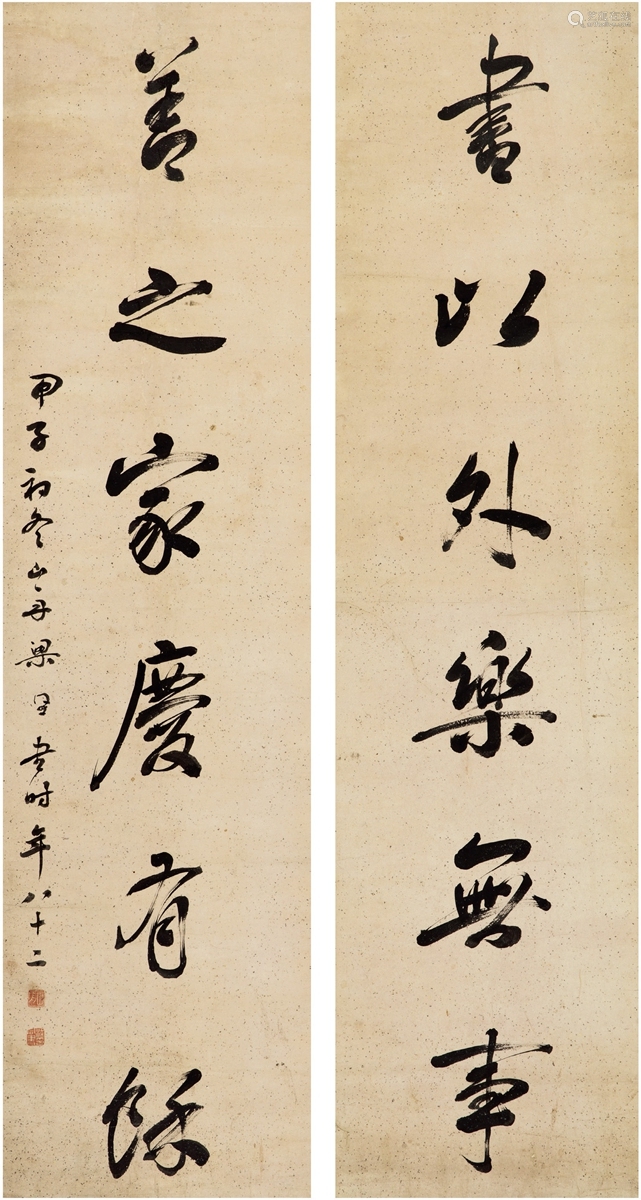 書以外樂無事
善之家慶有餘
甲子初冬山舟梁同書時年八十二